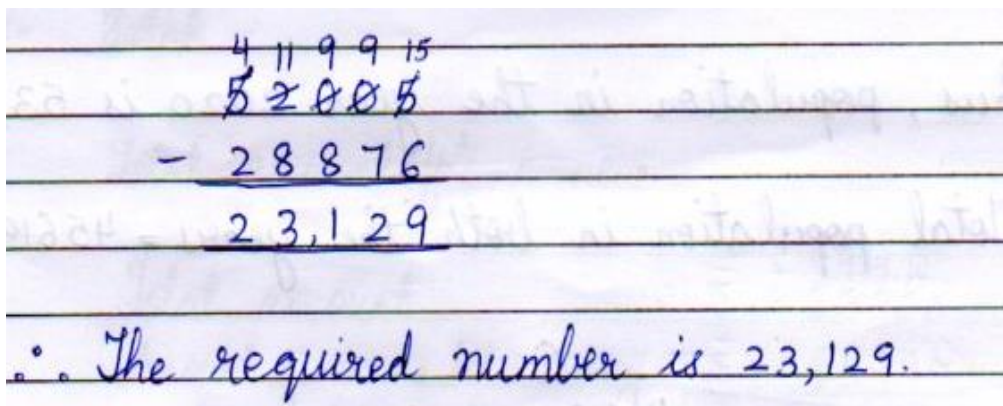 4 11 9 9 15
5 2 0 0 5
- 2 8 8 7 6
2 3,1 2 9
∴ The required number is 23,129.